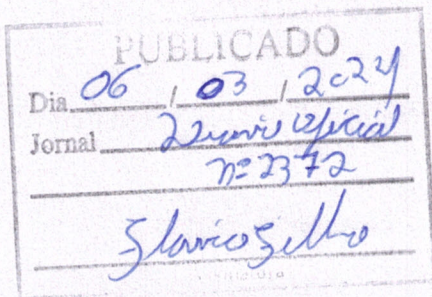 PUBLICADO
Dia 06 / 03 / 2024
Jornal Diario Oficial
nº 2372